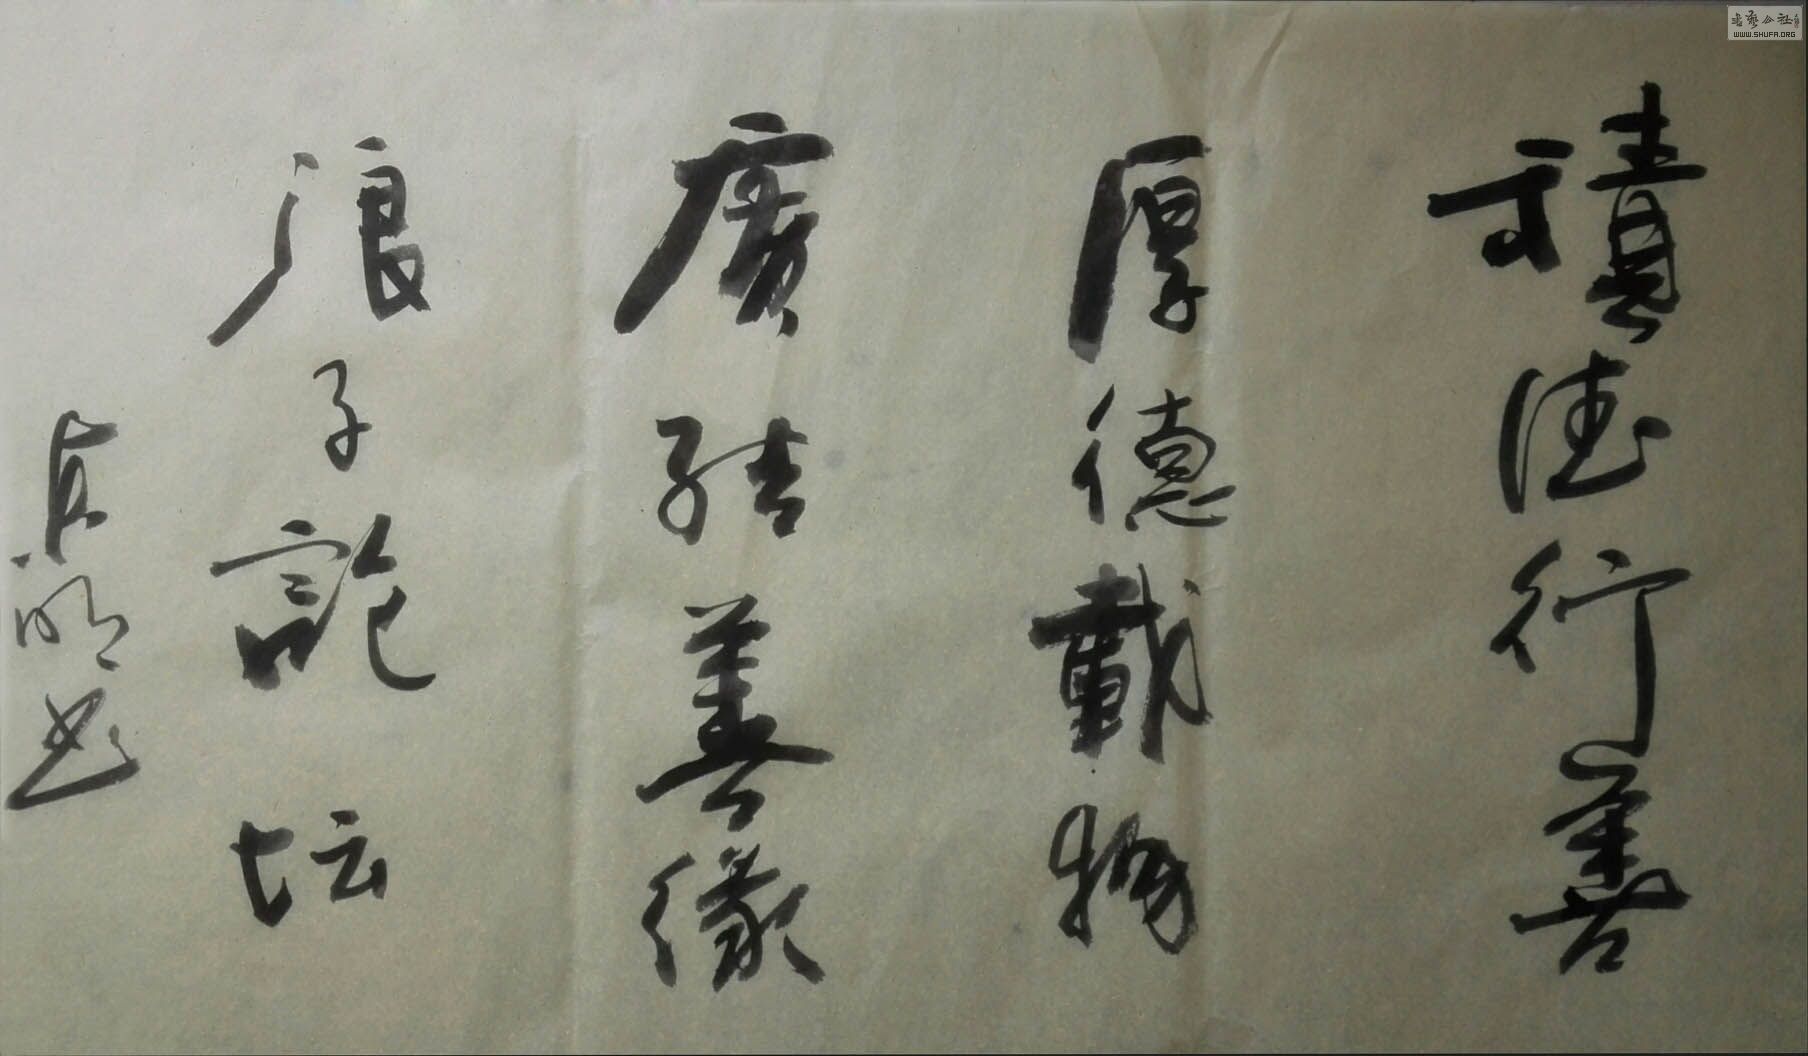 積德行善
厚德載物
廣結善緣
浪子論坛
明书
书艺公社
WWW.SHUFA.ORG